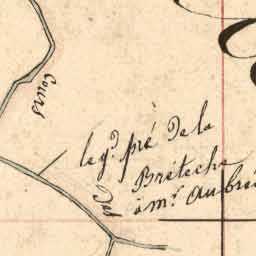 Cours
le g.d pré de la
Breteche
à m.r Aubré